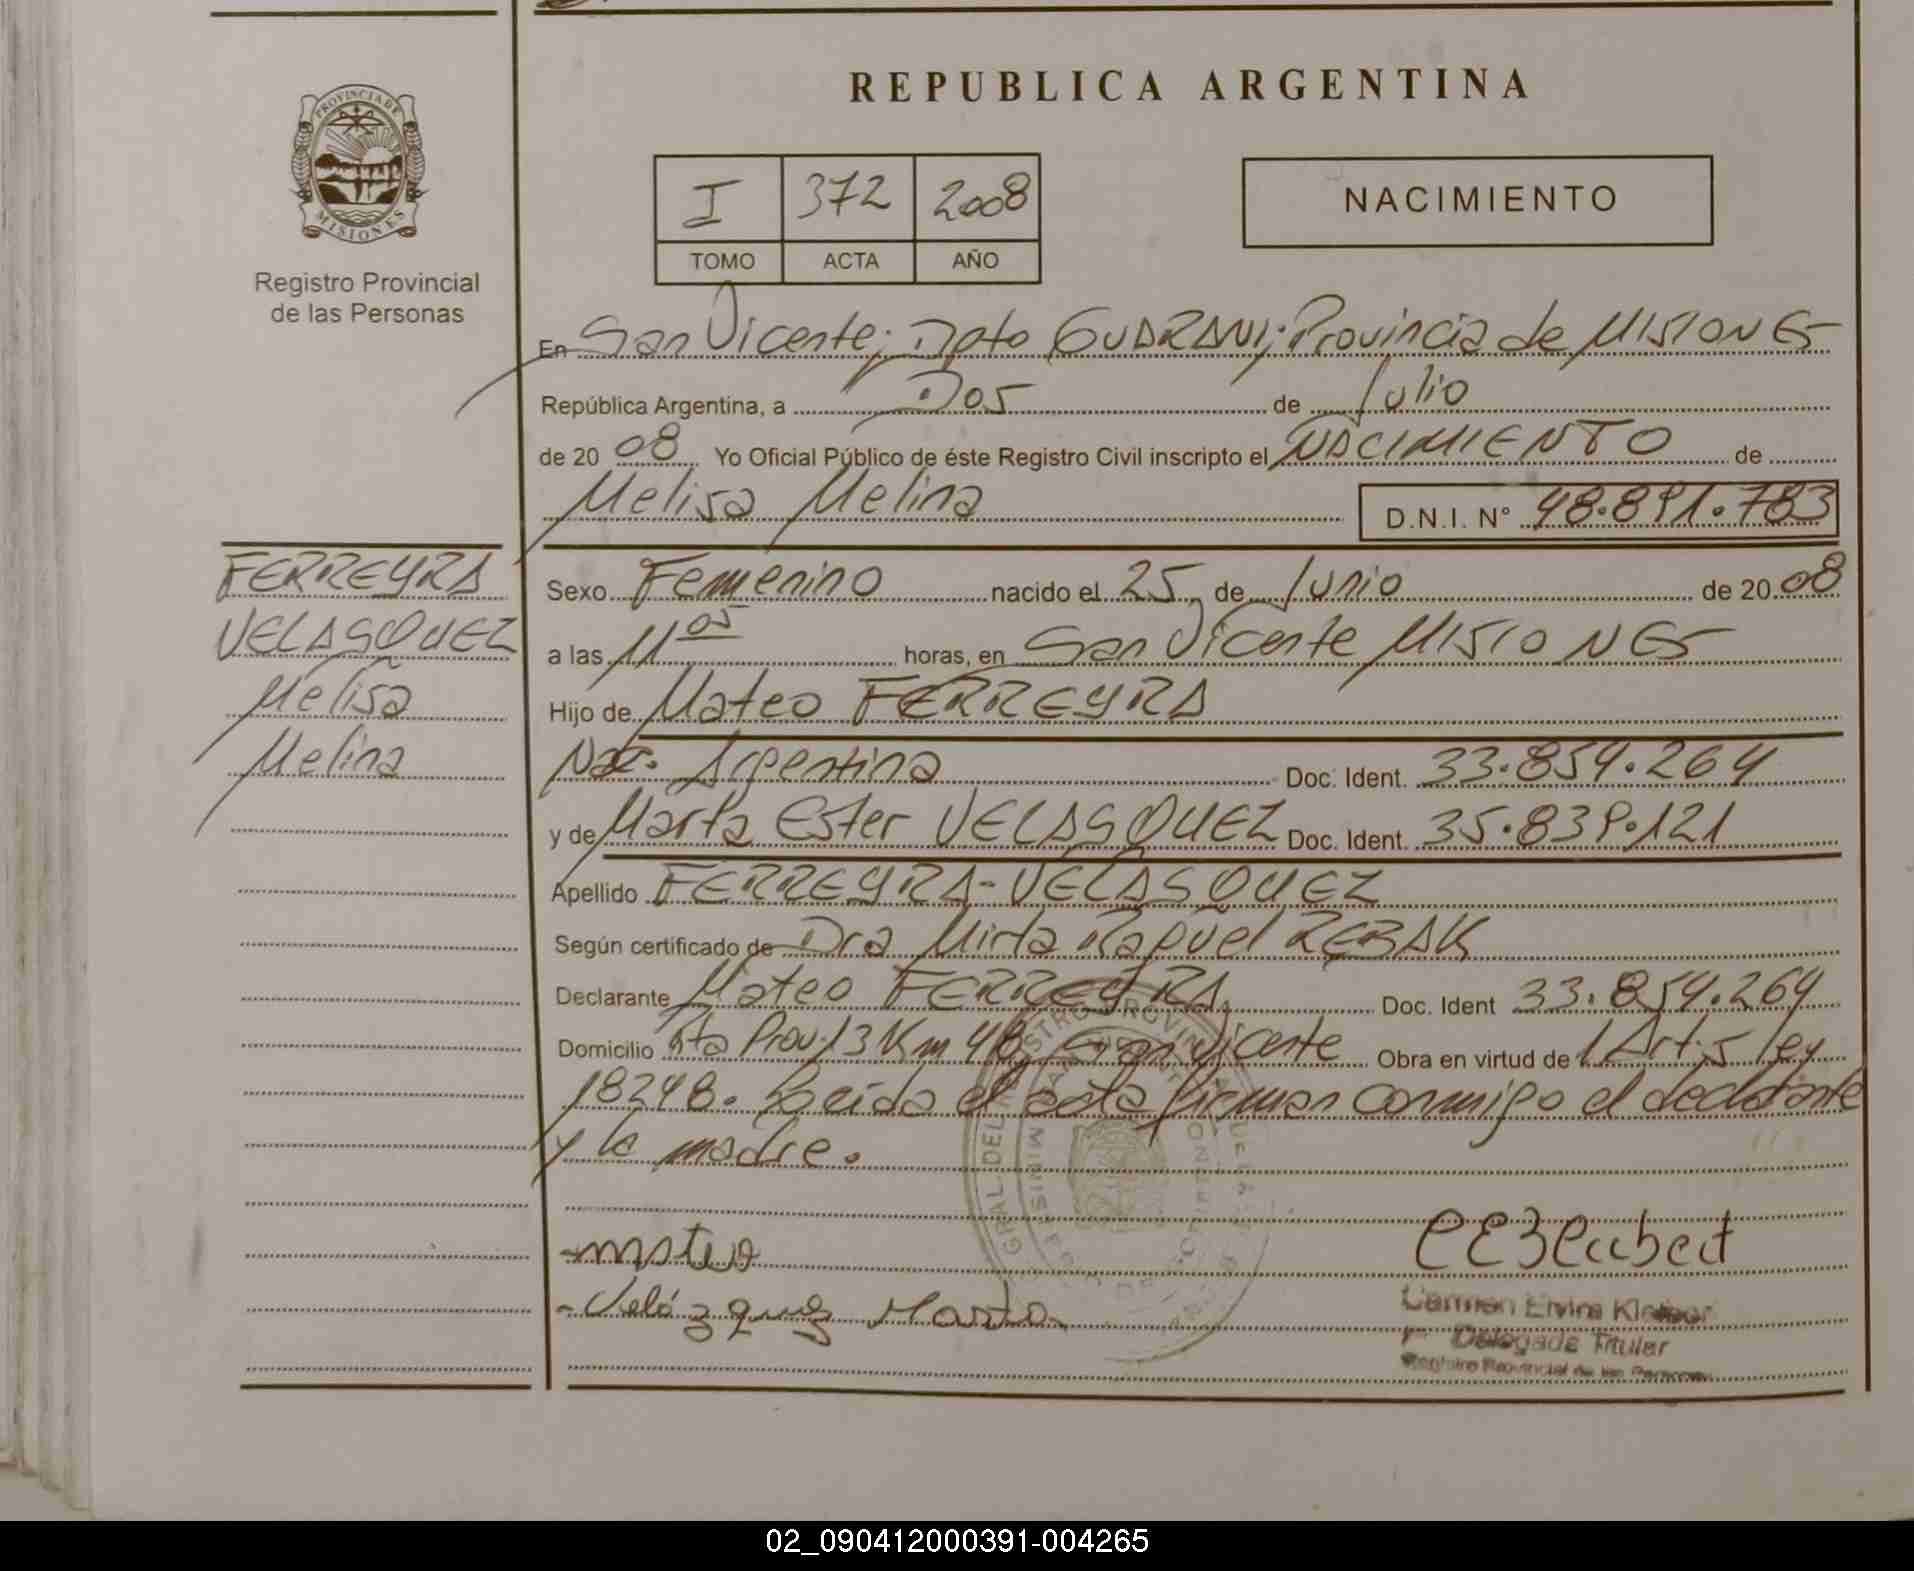 REPUBLICA ARGENTINA
PROVINCIA DE
MISIONES
Registro Provincial
de las Personas
I 372 2008
TOMO ACTA AÑO
NACIMIENTO
En San Vicente; Dpto GUARANI; Provincia de MISIONES
República Argentina, a Dos de Julio
de 2008 Yo Oficial Público de éste Registro Civil inscripto el NACIMIENTO de
Melisa Melina D.N.I. Nº 48.891.783
FERREYRA
VELASQUEZ
Melisa
Melina
Sexo Femenino nacido el 25 de Junio de 2008
a las 11 05 horas, en San Vicente MISIONES
Hijo de Mateo FERREYRA
Nac. Argentina Doc. Ident. 33.859.264
y de Marta Ester VELASQUEZ Doc. Ident. 35.839.121
Apellido FERREYRA-VELASQUEZ
Según certificado de Dra Mirta Raquel REBAK
Declarante Mateo FERREYRA Doc. Ident 33.859.264
Domicilio Rta Prov. 13 Km 48 San Vicente Obra en virtud de 1 Art. 5 ley
18248. Leida el acta firman conmigo el declarante
y la madre.
-mateo
-Velázquez Marta
Carmen Elvira
Delegada Titular
Registro Provincial de las Personas
02_090412000391-004265